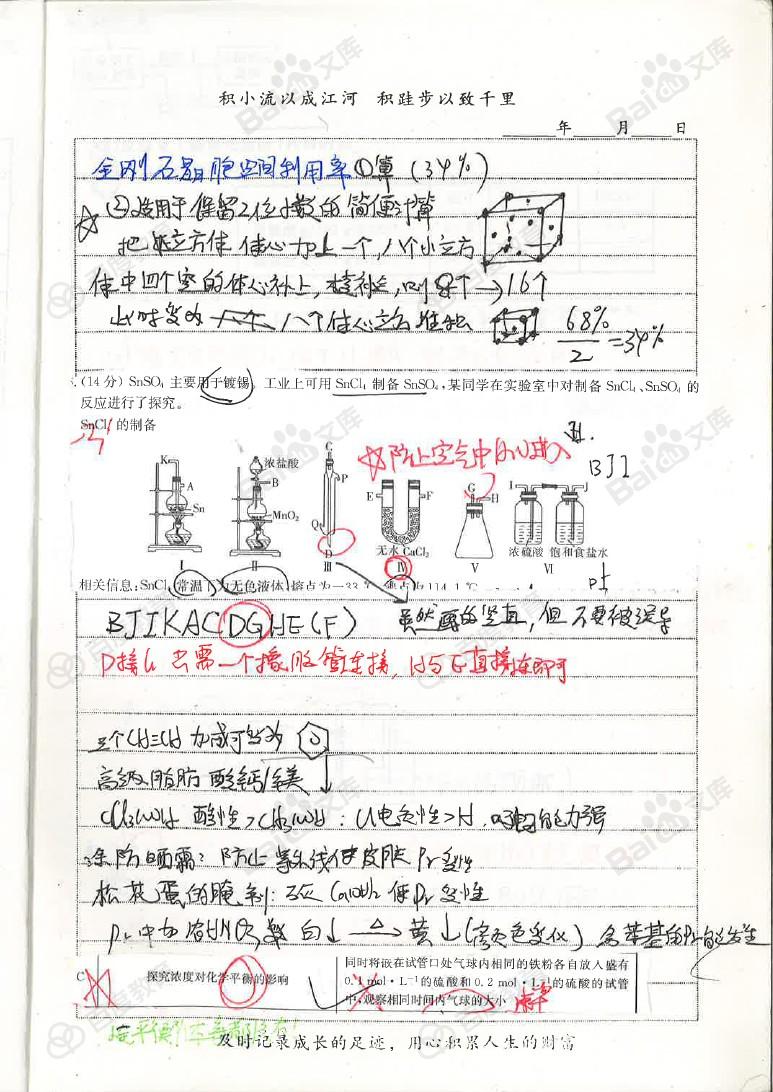 积小流以成江河 积跬步以致千里
年 月 日
金刚石晶胞空间利用率①算(34%)
②适用于保留2位小数的简便计算
把 立方体体心加上一个,八个小立方
体中四个空的体心补上, 则8个→16个
此时变为 八个体心立方堆积 68%/2=34%
(14分)SnSO₄主要用于镀锡。工业上可用SnCl₄制备SnSO₄,某同学在实验室中对制备SnCl₄、SnSO₄的
反应进行了探究。
SnCl₄的制备
☆防止空气中H₂O进入
BJI
K A Sn
浓盐酸 B MnO₂
C P Q D
E F 无水CaCl₂
G H
I J 浓硫酸 饱和食盐水
Ⅰ Ⅱ Ⅲ Ⅳ Ⅴ Ⅵ
相关信息:SnCl₄常温下为无色液体
BJIKACDGHE(F) 虽然画的竖直,但不要被误导
D接G只需一个橡胶管连接,H与E直接连即可
三个CH≡CH加成可生成
高级脂肪酸钙/镁↓
CCl₃COOH 酸性>CH₃COOH:Cl电负性>H,吸电子能力强
涂防晒霜:防止紫外线使皮肤Pr变性
松花蛋的腌制: Ca(OH)₂使Pr变性
Pr中加浓HNO₃ 白↓ △→ 黄↓(颜色变化) 含苯基的Pr能发生
C 探究浓度对化学平衡的影响
同时将嵌在试管口处气球内相同的铁粉各自放入盛有
0.1 mol·L⁻¹的硫酸和0.2 mol·L⁻¹的硫酸的试管
中,观察相同时间内气球的大小
速率
及时记录成长的足迹,用心积累人生的财富
Baidu文库
百度教育